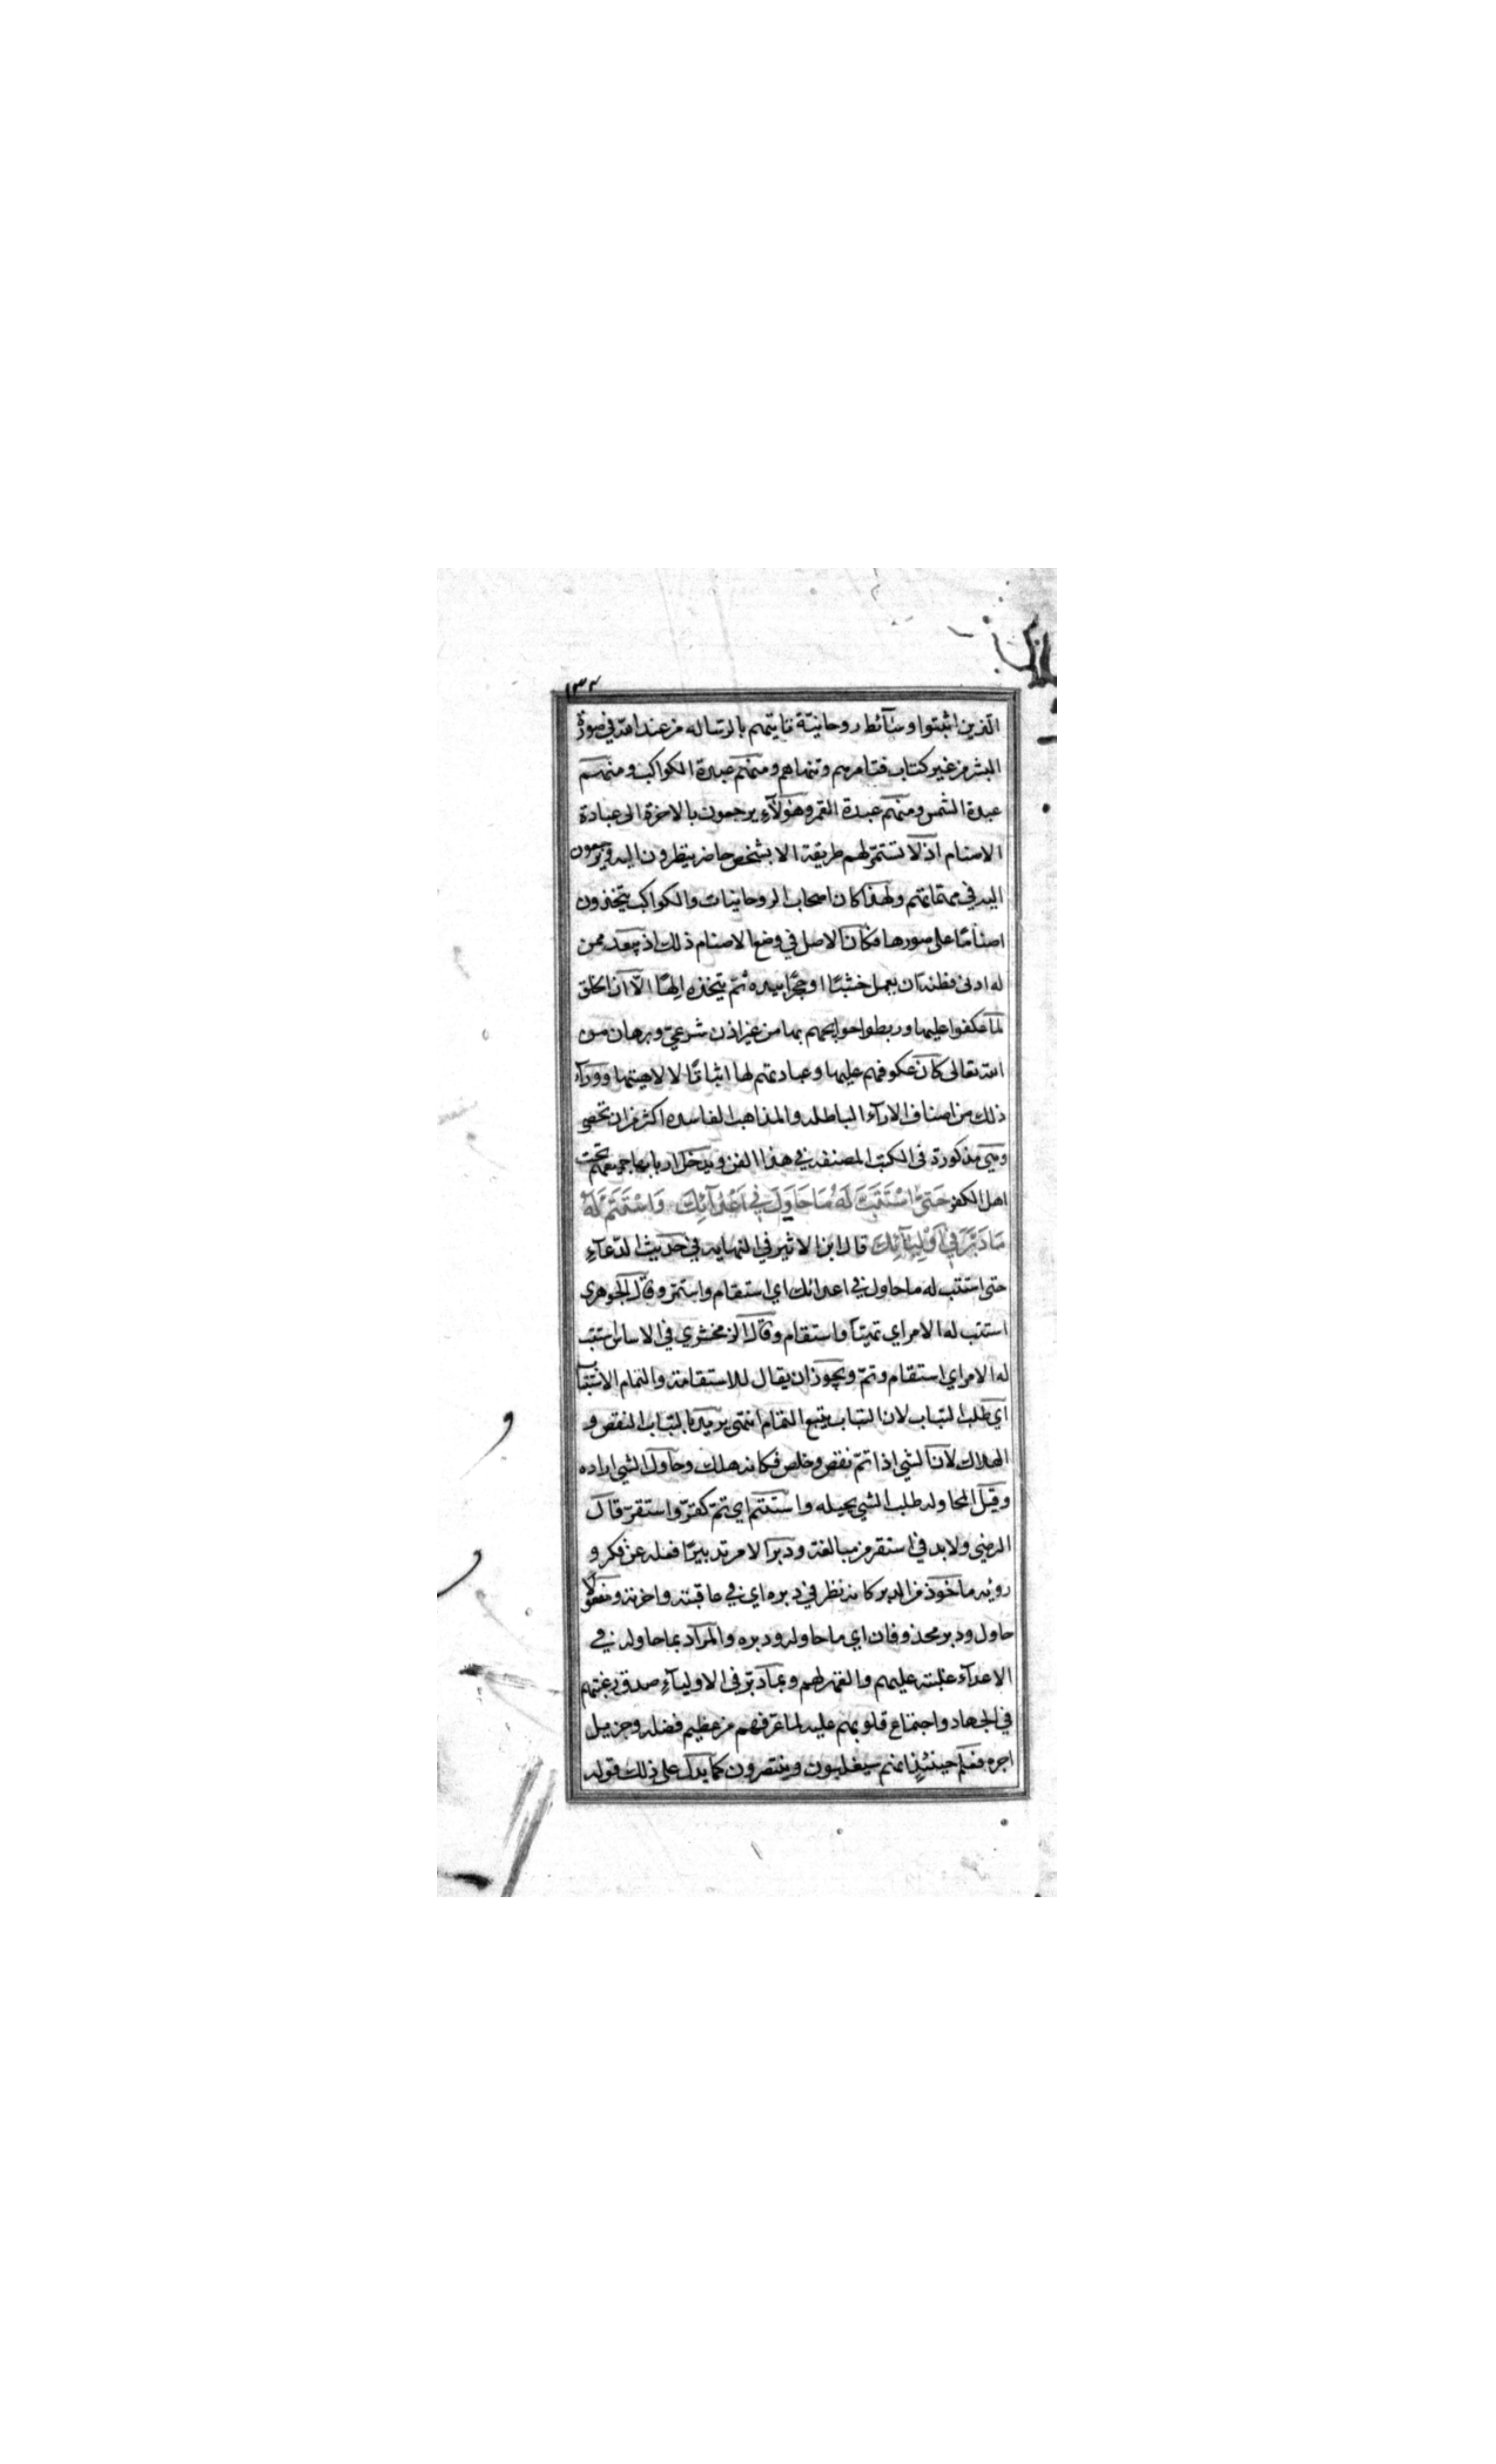 ١٣٢
الّذين اثبتوا وسآئط روحانيّة تايتهم بالرّساله من عند الله في صورة
البشر من غير كتاب فتامرهم وتنهاهم ومنهم عبدة الكواكب ومنهم
عبدة الشمس ومنهم عبدة القمر وهؤلآء يرجعون بالاخرة الى عبادة
الاصنام اذ لا تستمرّ لهم طريقة الا بشخص حاضر ينظرون اليه ويرجعون
اليه في مهمّاتهم ولهذا كان اصحاب الروحانيات والكواكب يتخذون
اصنامًا على صورها فكان الاصل في وضع الاصنام ذلك اذ يبعد ممن
له ادنى فطنة ان يعمل خشبًا او حجرًا بيده ثمّ يتخذه الٰهًا الّا ان الخلق
لما عكفوا عليها وربطوا حوايجهم بها من غير اذن شرعيّ وبرهان من
الله تعالى كان عكوفهم عليها وعبادتهم لها اثباتًا لالاهيتها ووراء
ذلك من اصناف الاراء الباطله والمذاهب الفاسده اكثر من ان تحصى
وهي مذكورة في الكتب المصنفه في هذا الفن ويدخل اربابها جميعهم تحت
اهل الكفر حَتّىٰ اسْتَتَبَّ لَهُ مَا حَاوَلَ فِي اَعْدَآئِكَ وَاسْتَتَمَّ لَهُ
مَا دَبَّرَ فِي اَوْلِيَآئِكَ قال ابن الاثير في النهايه في حديث الدّعآء
حتى استتب له ما حاول في اعدائك اي استقام واستمرّ وقال الجوهري
استتب له الامر اي تهيّأ واستقام وقال الزمخشري في الاساس استتب
له الامر اي استقام وتمّ ويجوز ان يقال للاستقامة والتمام الاستتباب
اي طلب التباب لان التباب يتبع التمام انتهى يريد بالتباب النقص و
الهلاك لان الشي اذا تمّ نقص وخلص فكانه هلك وحاول الشي اراده
وقيل المحاوله طلب الشي بحيله واستتم اي تمّ كقرّ واستقرّ قال
الرضي ولابد في استقر من مبالغة ودبر الامر تدبيرًا فعله عن فكر و
رويه ماخوذ من الدبر كانه نظر في دبره اي في عاقبته واخرته ومفعولا
حاول ودبر محذوفان اي ما حاوله ودبره والمراد بما حاوله في
الاعدآء غلبته عليهم والقهر لهم وبما دبّر في الاوليآء صدق رغبتهم
في الجهاد واجتماع قلوبهم عليه لما عرفهم من عظيم فضله وجزيل
اجره فعلم حينئذ انهم سيغلبون وينتصرون كما يدل على ذلك قوله